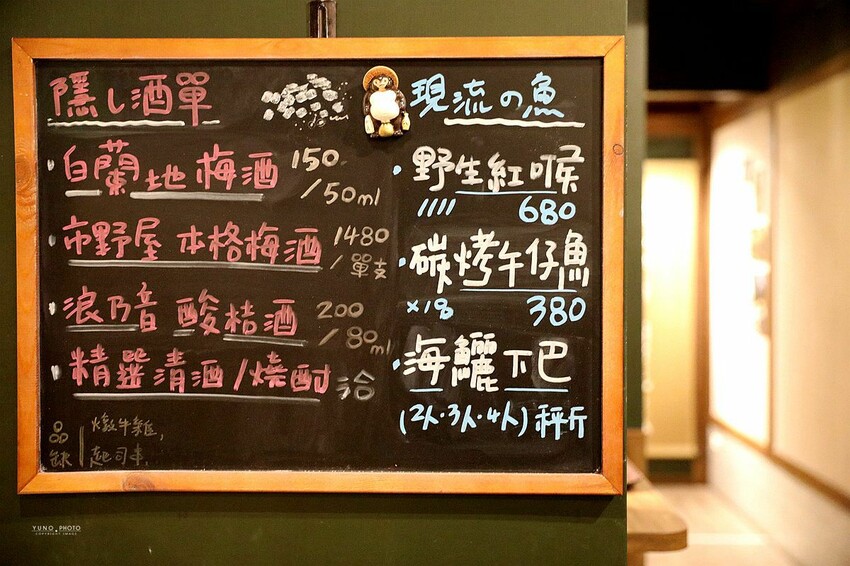 隱し酒單
白蘭地 梅酒 150
/50ml
市野屋 本格梅酒 1480
/單支
浪乃音 酸桔酒 200
/80ml
精選清酒/燒酎 洽
品
缺
燉牛雜,
起司串,
現流の魚
野生紅喉
680
碳烤午仔魚
x18 380
海鱺下巴
(2人·3人·4人) 秤斤
YUNO PHOTO
COPYRIGHT IMAGE